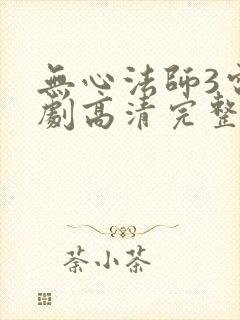 無心法師3電
劇高清完整
荼小茶